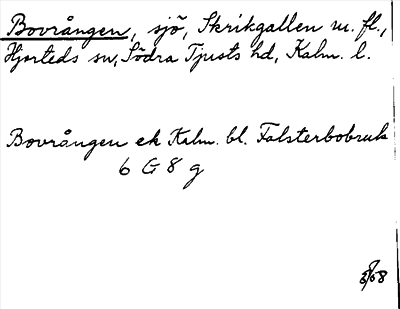 Bovrången, sjö, Skrikgallen m. fl.,
Hjorteds sn, Södra Tjusts hd, Kalm. l.
Bovrången ek Kalm. bl. Falsterbobruk
6 G 8 g